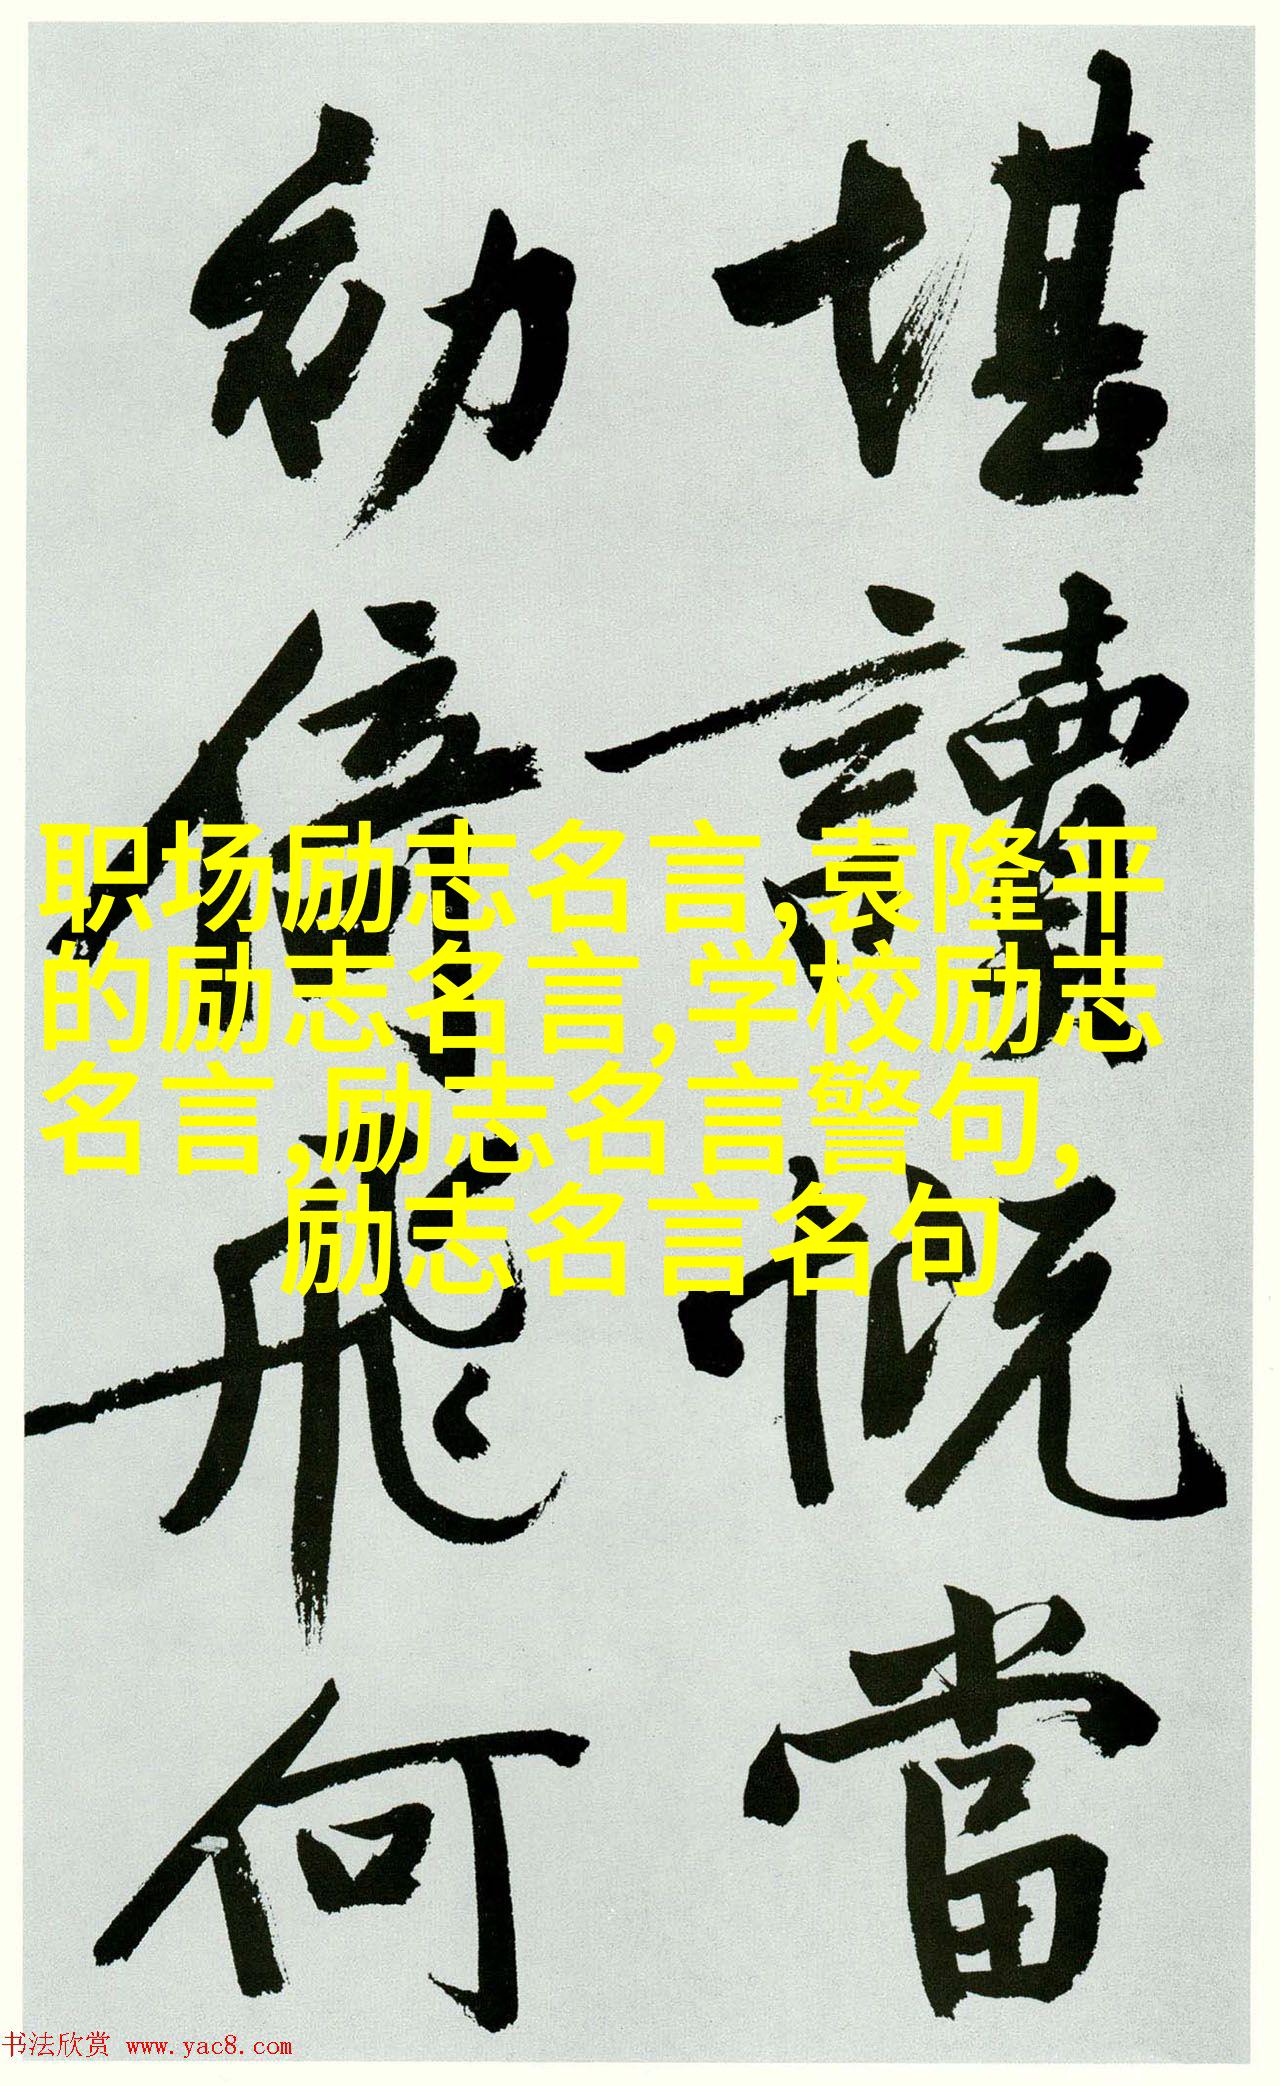 堪讀慨當
初倚飛何
职场励志名言,袁隆平
的励志名言,学校励志
名言,励志名言警句,
励志名言名句
书法欣赏 www.yac8.com